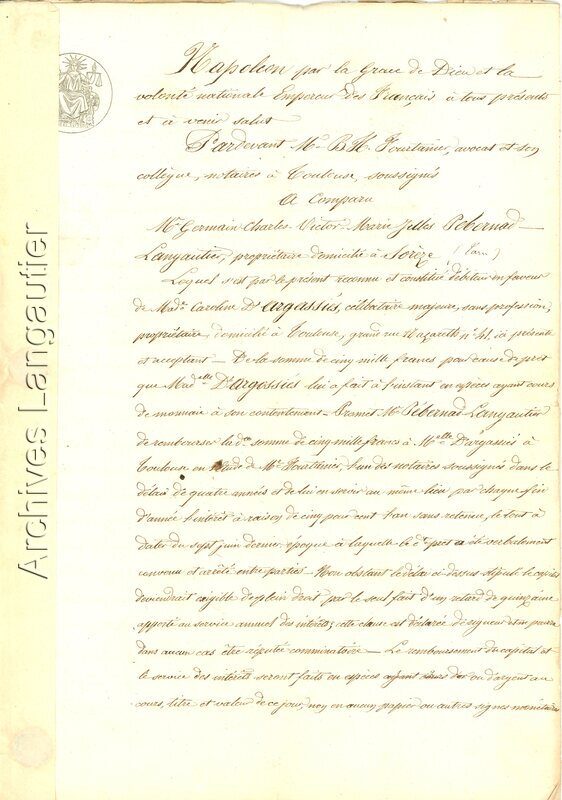 Napoléon par la Grace de Dieu et la
volonté nationale Empereur des Français à tous présents
et à venir salut
Pardevant Me B.H. Fourtanier, avocat et son
collègue, notaires à Toulouse, soussignés
A Comparu
Mr Germain Charles Victor Marie Gilles Pebernad
Langautier, propriétaire domicilié à Sorèze (Tarn)
Lequel s'est par le présent reconnu et constitué débiteur en faveur
de Made Caroline D'argassiés, célibataire majeure, sans profession,
propriétaire, domiciliée à Toulouse, grand rue Nazareth, n° 41, ici présente
et acceptant – De la somme de cinq mille francs pour cause de prêt
que Madelle D'argassiés lui a fait à l'instant en espèces ayant cours
de monnaie à son contentement – Promet Mr Pébernad Langautier
de rembourser la dte somme de cinq mille francs à Melle Dargassiés à
Toulouse en l'étude de Me Fourtanier, l'un des notaires soussignés dans le
délai de quatre années et de lui en servir au même lieu par chaque fin
d'année l'intérêt à raison de cinq pour cent l'an sans retenue, le tout à
dater du sept juin dernier, époque à laquelle le dt prêt a été verbalement
convenu et arrêté entre parties – Non obstant le délai ci-dessus stipulé le capital
deviendrait exigible de plein droit par le seul fait d'un retard de quinzaine
apporté au service annuel des intérêts; cette clause est déclarée de rigueur et ne pourra
dans aucun cas être réputée comminatoire – Le remboursement du capital et
le service des intérêts seront faits en espèces ayant cours d'or ou d'argent au
cours, titre et valeur de ce jour, non en aucun papier ou autres signes monétaires
Archives Langautier